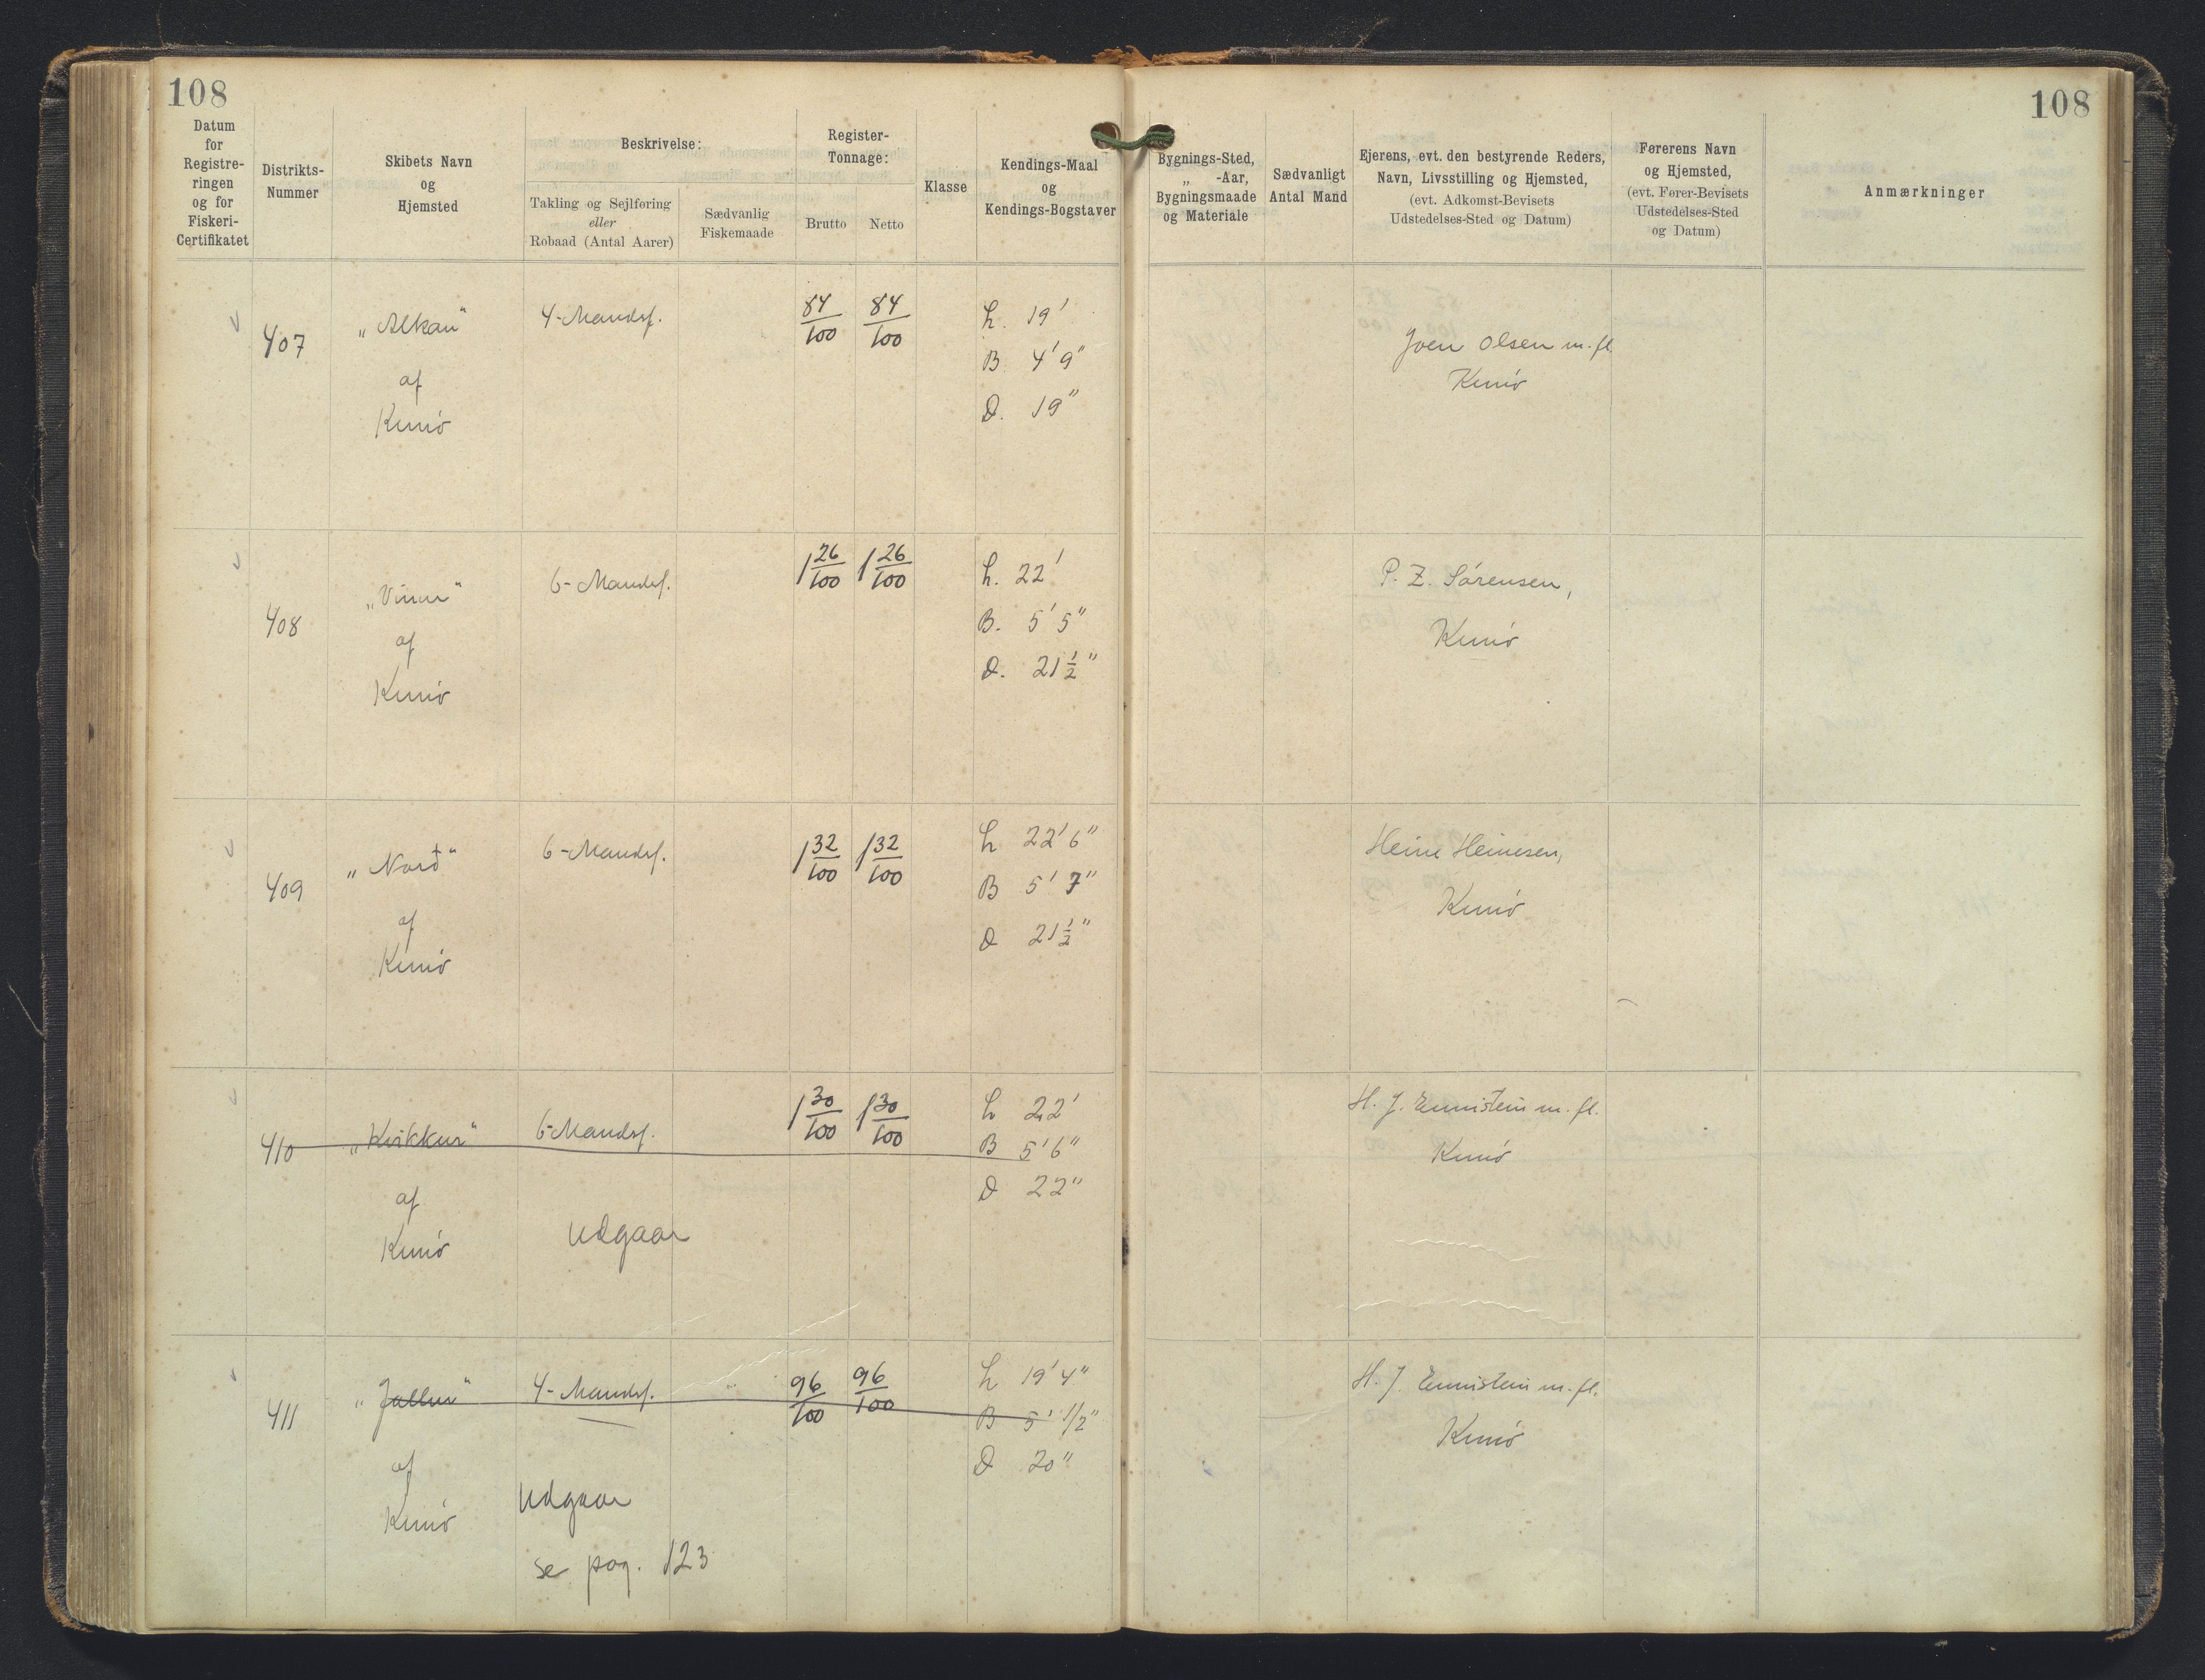 108
108
Datum for Registreringen og for Fiskeri-Certifikatet
Distrikts-Nummer
Skibets Navn og Hjemsted
Beskrivelse:
Takling og Sejlføring eller Robaad (Antal Aarer)
Sædvanlig Fiskemaade
Register-Tonnage:
Brutto
Netto
Klasse
Kendings-Maal og Kendings-Bogstaver
Bygnings-Sted, „ -Aar, Bygningsmaade og Materiale
Sædvanligt Antal Mand
Ejerens, evt. den bestyrende Reders, Navn, Livsstilling og Hjemsted, (evt. Adkomst-Bevisets Udstedelses-Sted og Datum)
Førerens Navn og Hjemsted, (evt. Fører-Bevisets Udstedelses-Sted og Datum)
Anmærkninger
407 „Alkan" 4-Mandsf. 84/100 84/100 L. 19' Joen Olsen m. fl.
af B. 4' 9" Kunø
Kunø D. 19"
408 6-Mandsf. 1 26/100 1 26/100 L. 22' P. Z. Sørensen,
af B. 5' 5" Kunø
Kunø D. 21 1/2"
409 „Norð" 6-Mandsf. 1 32/100 1 32/100 L 22' 6" Heine Heinesen,
af B 5' 7" Kunø
Kunø D 21 1/2"
410 „Kvikkur" 6-Mandsf. 1 30/100 1 30/100 L 22' H. J. Ennistein m. fl.
af B 5' 6" Kunø
Kunø D 22"
Udgaar
411 4-Mandsf. 96/100 96/100 L 19' 4" H. J. Ennistein m. fl.
af B 5' 1/2" Kunø
Kunø D 20"
Udgaar
se pag. 123